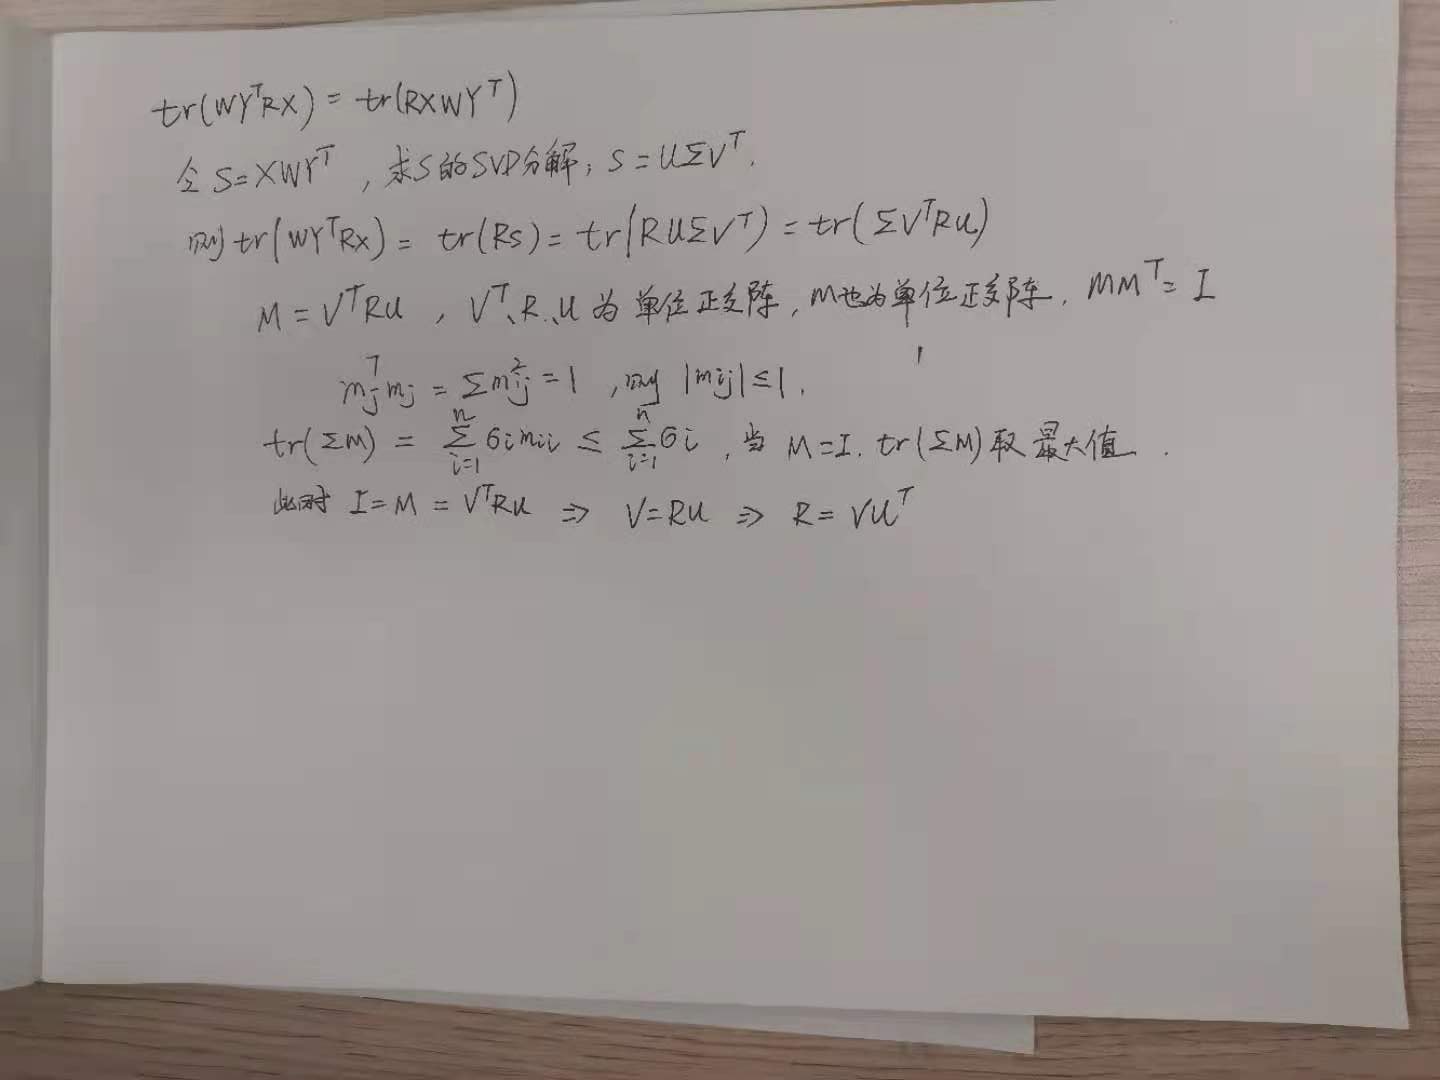 tr(WYᵀRX) = tr(RXWYᵀ)
令 S=XWYᵀ , 求S的SVD分解; S = UΣVᵀ.
则 tr(WYᵀRX) = tr(RS) = tr(RUΣVᵀ) = tr(ΣVᵀRU)
M = VᵀRU , Vᵀ、R、U 为单位正交阵, M也为单位正交阵, MMᵀ = I
mⱼᵀmⱼ = Σmᵢⱼ² = 1 , 则 |mᵢⱼ| ≤ 1.
tr(ΣM) = Σᵢ₌₁ⁿ σᵢmᵢᵢ ≤ Σᵢ₌₁ⁿ σᵢ , 当 M=I. tr(ΣM)取最大值.
此时 I=M = VᵀRU ⇒ V=RU ⇒ R = VUᵀ